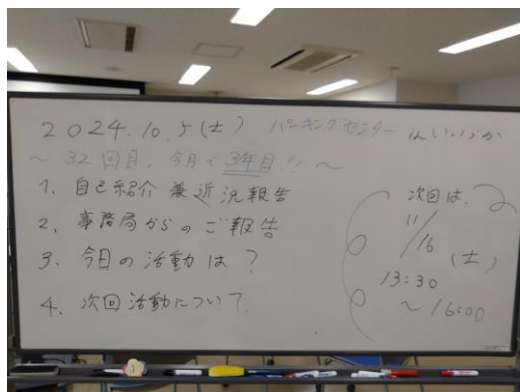 2024.10.5(土) バンキングセンター in いいづか
～32回目。今月で3年目!!～
1. 自己紹介兼近況報告
2. 事務局からのご報告
3. 今日の活動は?
4. 次回活動について
次回は、
11/16(土)
13:30
～16:00